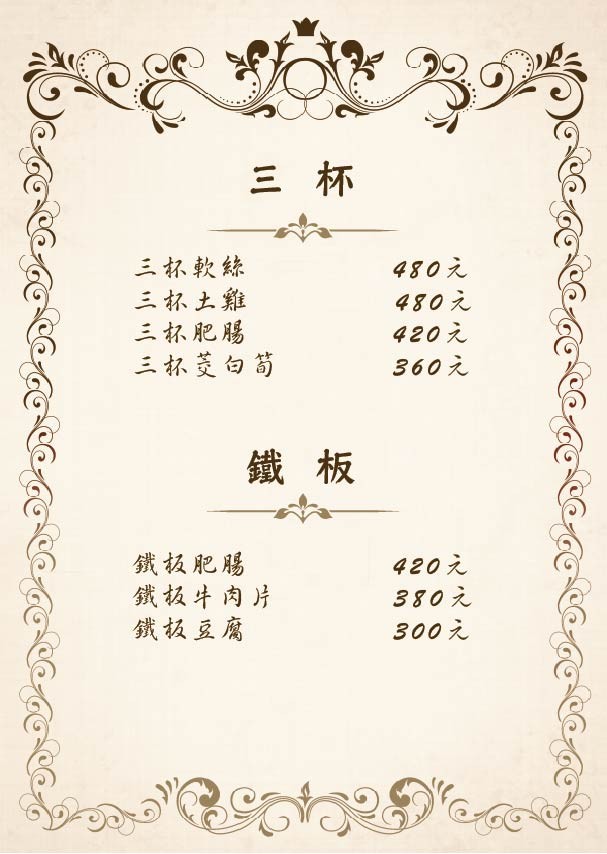 三杯
三杯軟絲 480元
三杯土雞 480元
三杯肥腸 420元
三杯茭白筍 360元
鐵板
鐵板肥腸 420元
鐵板牛肉片 380元
鐵板豆腐 300元